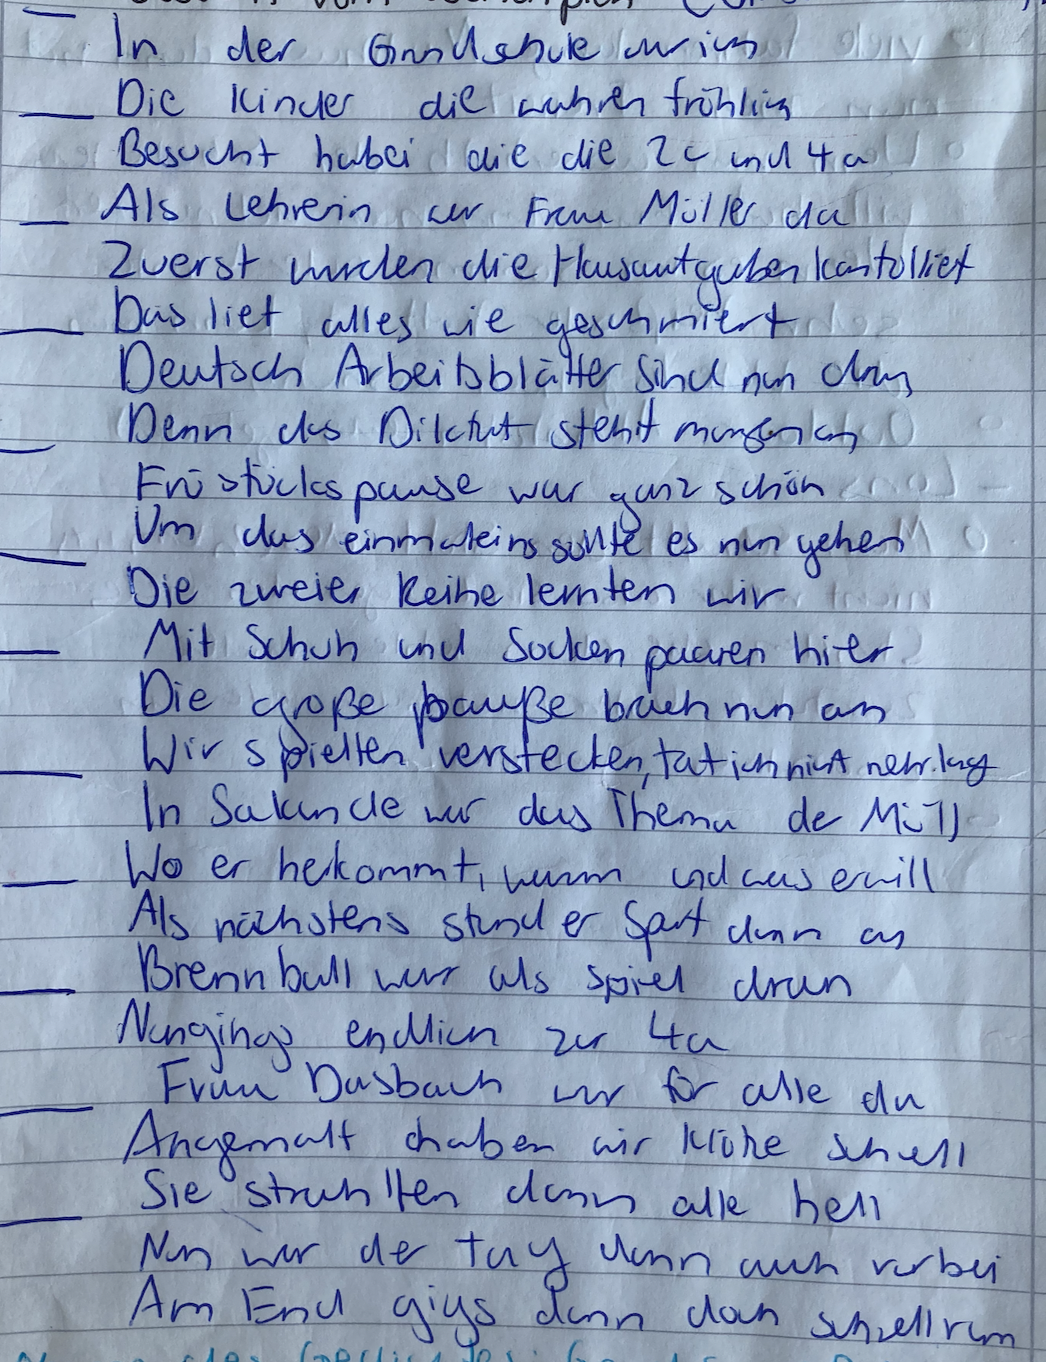 In der Grundschule war ich
Die Kinder die wahren fröhlich
Besucht habei die die 2c und 4a
Als Lehrerin war Frau Müller da
Zuerst wurden die Hausaufgaben kontolliet
Das lief alles wie geschmiert
Deutsch Arbeitsblätter sind nun dran
Denn das Diktat steht morgen an
Früstückspause war ganz schön
Um das einmaleins sollte es nun gehen
Die zweier Reihe lernten wir
Mit Schuh und Socken paaren hier
Die große pauße brach nun an
Wir spielten verstecken, tat ich nicht mehr lang
In Sakunde war das Thema de Müll
Wo er herkommt, warum und was er will
Als nächstens stand er Sport dann an
Brennball war als spiel dran
Nun gings endlich zur 4a
Frau Dasbach war für alle da
Angemalt haben wir Klöhe schnell
Sie strahlten dann alle hell
Nun war der tag dann auch vorbei
Am End gigs dann doch schnell rum